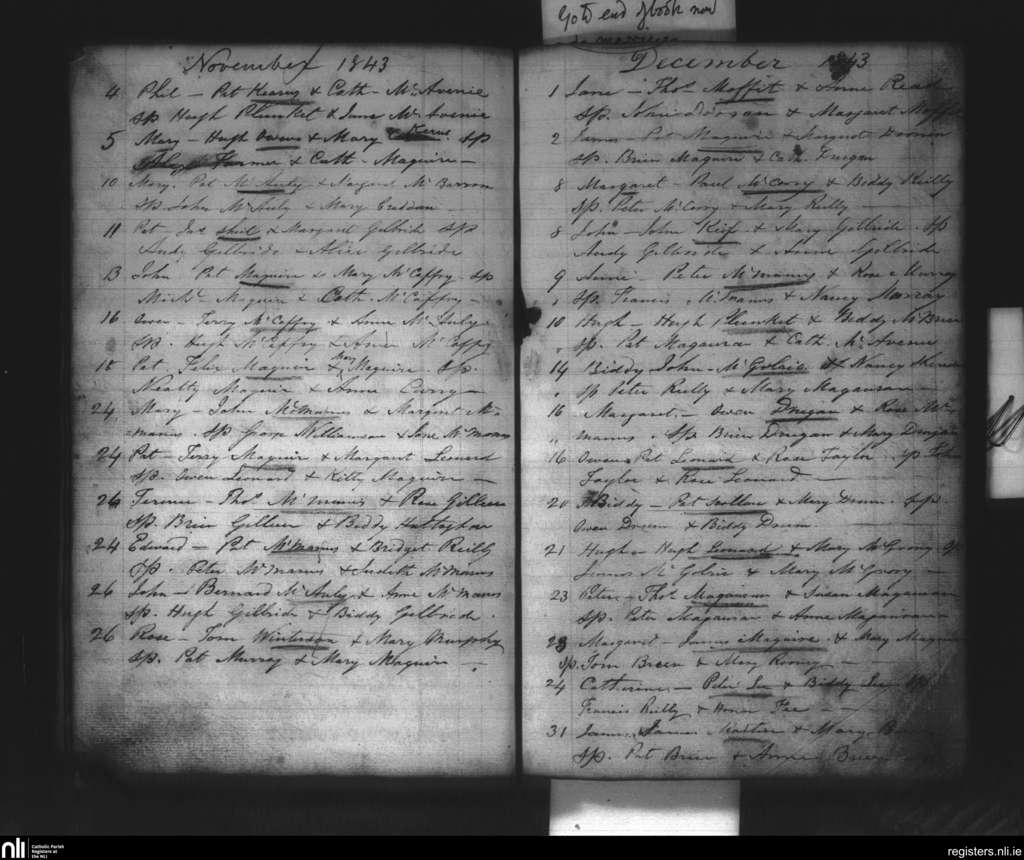 Go to end of book now
November 1843
4 Phil - Pat Kearns & Cath - McAvenie
Sp Hugh Plunket & Jane McAvenie
5 Mary - Hugh Owens & Mary Sp
& Cath - Maguire -
10 Mary. Pat McAuly & Margaret McBarron
Sp. John McAuly & Mary
11 Pat - Shiel & Margaret Gilbride Sp
Andy Gilbride & Alice Gilbride
13 John Pat Maguire & Mary McCaffry - Sp
Maguire & Cath - McCaffry -
16 Owen - Terry McCaffry & Anne McAuly
Sp. Hugh McCaffry & Anne McCaffry
15 Pat Felix Maguire & Mary Maguire. Sp.
Maguire & Anne Curry -
24 Mary - John McManus & Margaret Mc
manus. Sp George Williamson & Jane McManus
24 Pat - Terry Maguire & Margaret Leonard
Sp. Owen Leonard & Kitty Maguire -
26 Terence - Thos McManus & Rose Gilleen
Sp. Brien Gilleen & Biddy
24 Edward - Pat McManus & Bridget Reilly
Sp. Peter McManus & Judith McManus
26 John - Bernard McAuly & Anne McManus
Sp. Hugh Gilbride & Biddy Gilbride.
26 Rose - Tom Winterson & Mary Murphy
Sp. Pat Murray & Mary Maguire -
December 1843
1 Jane - Thos Moffit & Anne Read
Sp. & Margaret Moffit
2 James - Pat Maguire & Margaret
Sp. Brien Maguire & Cath.
8 Margaret - Paul McCorry & Biddy Reilly
Sp. Peter McCorry & Mary Reilly -
8 John - John Keif & Mary Gilbride. Sp
Andy Gilbride & Anne Gilbride
9 Anne Peter McManus & Rose Murray
Sp. Francis McManus & Nancy Murray
10 Hugh - Hugh Plunket & Biddy McBrien
Sp. Pat Magauran & Cath McAvenie
14 Biddy John - McGolric & Nancy
Sp Peter Reilly & Mary Magauran -
16 Margaret - Owen Drugan & Rose Mc
manus. Sp Brien Drugan & Mary Drugan
16 Owen Pat Leonard & Rose Taylor. Sp John
Taylor & Rose Leonard -
20 Biddy - Pat & Mary Drum. Sp
Owen Drum & Biddy Drum.
21 Hugh - Hugh Leonard & Mary McGrory Sp
James McGolric & Mary McGrory -
23 Peter - Thos Magauran & Susan Magauran
Sp. Peter Magauran & Anne Magauran
23 Margaret - James Maguire & Mary Maguire
Sp. Tom Breen & Mary Rooney -
24 Catherine - Peter Lee & Biddy Lee Sp
Francis Reilly & Honor Fee -
31 James & Mary
Sp. Pat Breen & Anne Breen
nli Catholic Parish Registers at the NLI
registers.nli.ie